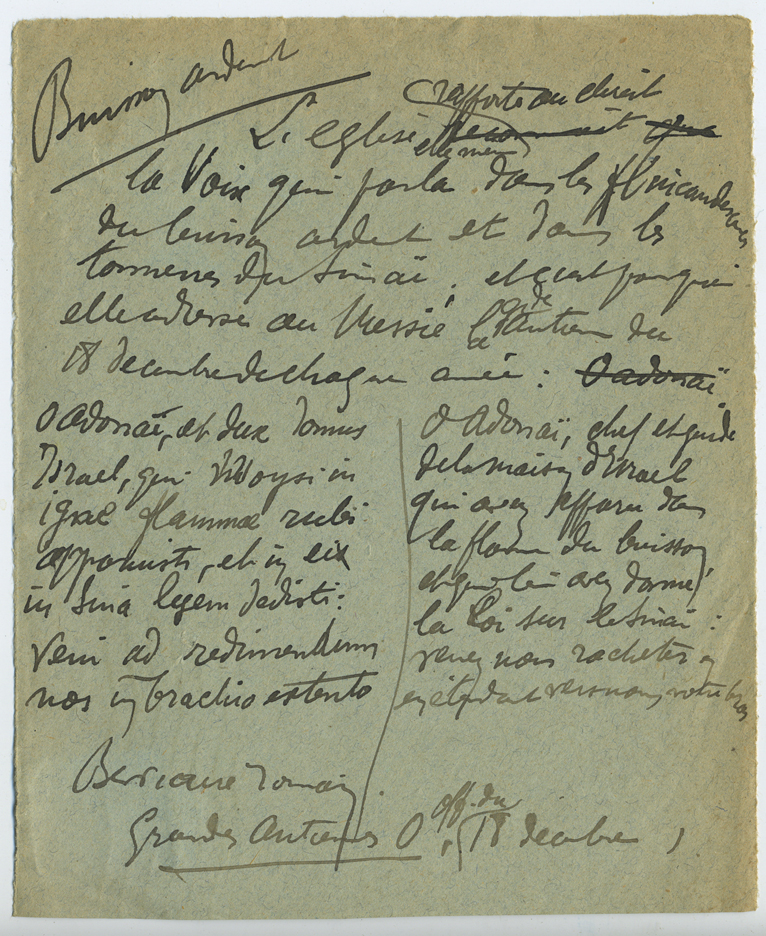 Buisson ardent
rapporte au Christ
L'église reconnait que
elle meme
la Voix qui parla dans les fl. incandescences
du buisson ardent et dans les
tonnerres du Sinaï, et c'est pourquoi
elle adresse au Messie la Gde Antienne du
18 decembre de chaque année : O adonaï
O adonaï, et dux domus
Israel, qui Moysi in
igne flammæ rubi
apparuisti, et in eix
in Sina legem dedisti :
Veni ad redimendum
nos in brachio extento
O Adonaï, chef et guide
de la maison d'Israel
qui avez apparu dans
la flamme du buisson
et qui lui avez donné
la Loi sur le Sinaï :
venez nous racheter en
en étendant vers nous votre bras
Breviaire romain.
off. du
Grandes Antiennes O, (18 decembre)